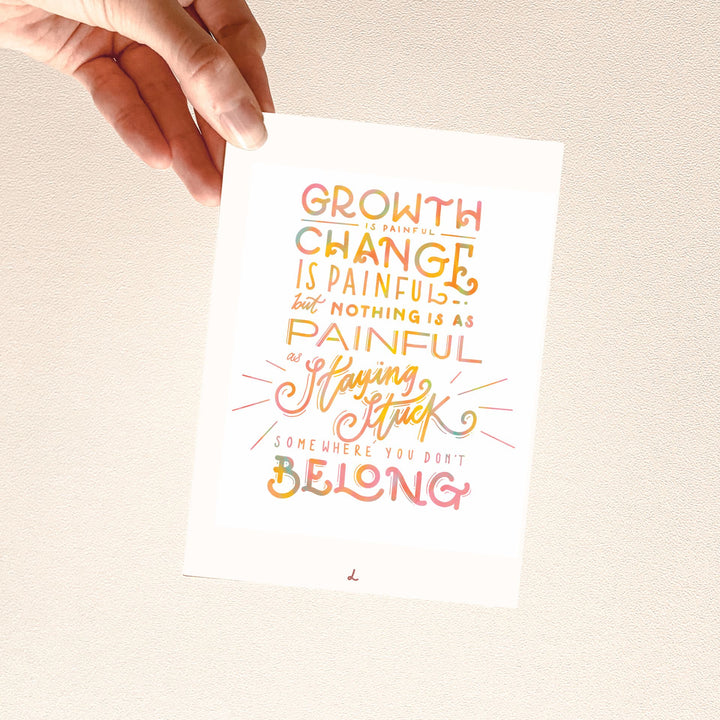 GROWTH
IS PAINFUL
CHANGE
IS PAINFUL...
but NOTHING IS AS
PAINFUL
as Staying
Stuck
SOMEWHERE YOU DON'T
BELONG
L